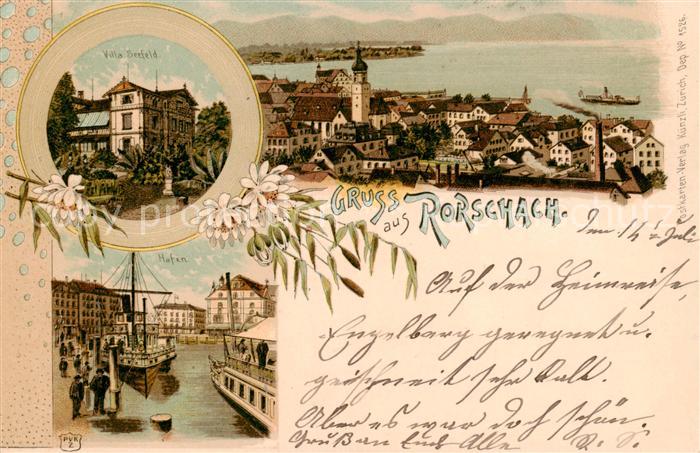 Villa Seefeld.
GRUSS
aus RORSCHACH.
Hafen
PVK
Z
Postkarten-Verlag Künzli, Zürich, Dep. No 1526.
Den 14 Juli
Auf der Heimreise,
Engelberg geregnet u.
geschneit sehr kalt.
Aber es war doch schön.
Gruß an Euch Alle